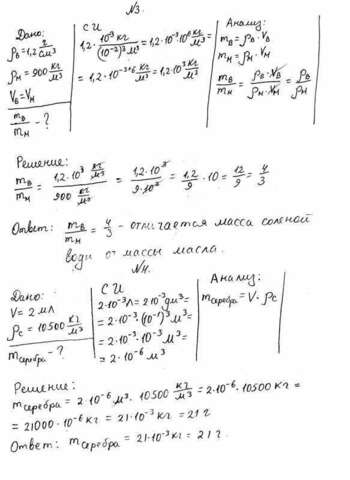 №3.
Дано:
ρв = 1,2 г/см³
ρм = 900 кг/м³
Vв = Vм
mв/mм - ?
СИ
1,2 · 10⁻³ кг/(10⁻²)³ м³ = 1,2 · 10⁻³ · 10⁶ кг/м³ =
= 1,2 · 10⁻³⁺⁶ кг/м³ = 1,2 · 10³ кг/м³
Анализ:
mв = ρв · Vв
mм = ρм · Vм
mв/mм = ρв · Vв/ρм · Vм = ρв/ρм
Решение:
mв/mм = 1,2 · 10³ кг/м³/900 кг/м³ = 1,2 · 10³/9 · 10² = 1,2/9 · 10 = 12/9 = 4/3
Ответ: mв/mм = 4/3 - отличается масса соленой
воды от массы масла.
№4.
Дано:
V = 2 мл
ρс = 10500 кг/м³
mсеребра - ?
СИ
2·10⁻³ л = 2·10⁻³ дм³ =
= 2·10⁻³ · (10⁻¹)³ м³ =
= 2·10⁻³ · 10⁻³ м³ =
= 2 · 10⁻⁶ м³
Анализ:
mсеребра = V · ρс
Решение:
mсеребра = 2·10⁻⁶ м³ · 10500 кг/м³ = 2·10⁻⁶ · 10500 кг =
= 21000 · 10⁻⁶ кг = 21·10⁻³ кг = 21 г
Ответ: mсеребра = 21·10⁻³ кг = 21 г.